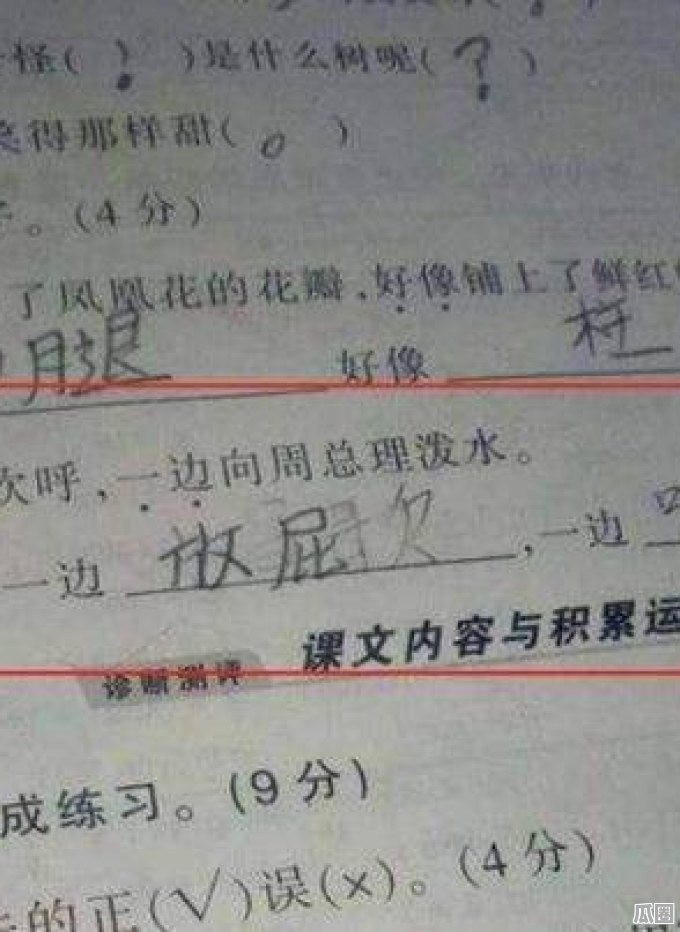 怪( ! )是什么树呢( ? )
笑得那样甜( 。 )
。(4 分)
了凤凰花的花瓣,好像铺上了鲜红
腿 好像
欢呼,一边向周总理泼水。
一边 放屁 ,一边
诊断测评 课文内容与积累运
成练习。(9 分)
的正(√)误(×)。(4 分)
瓜圈